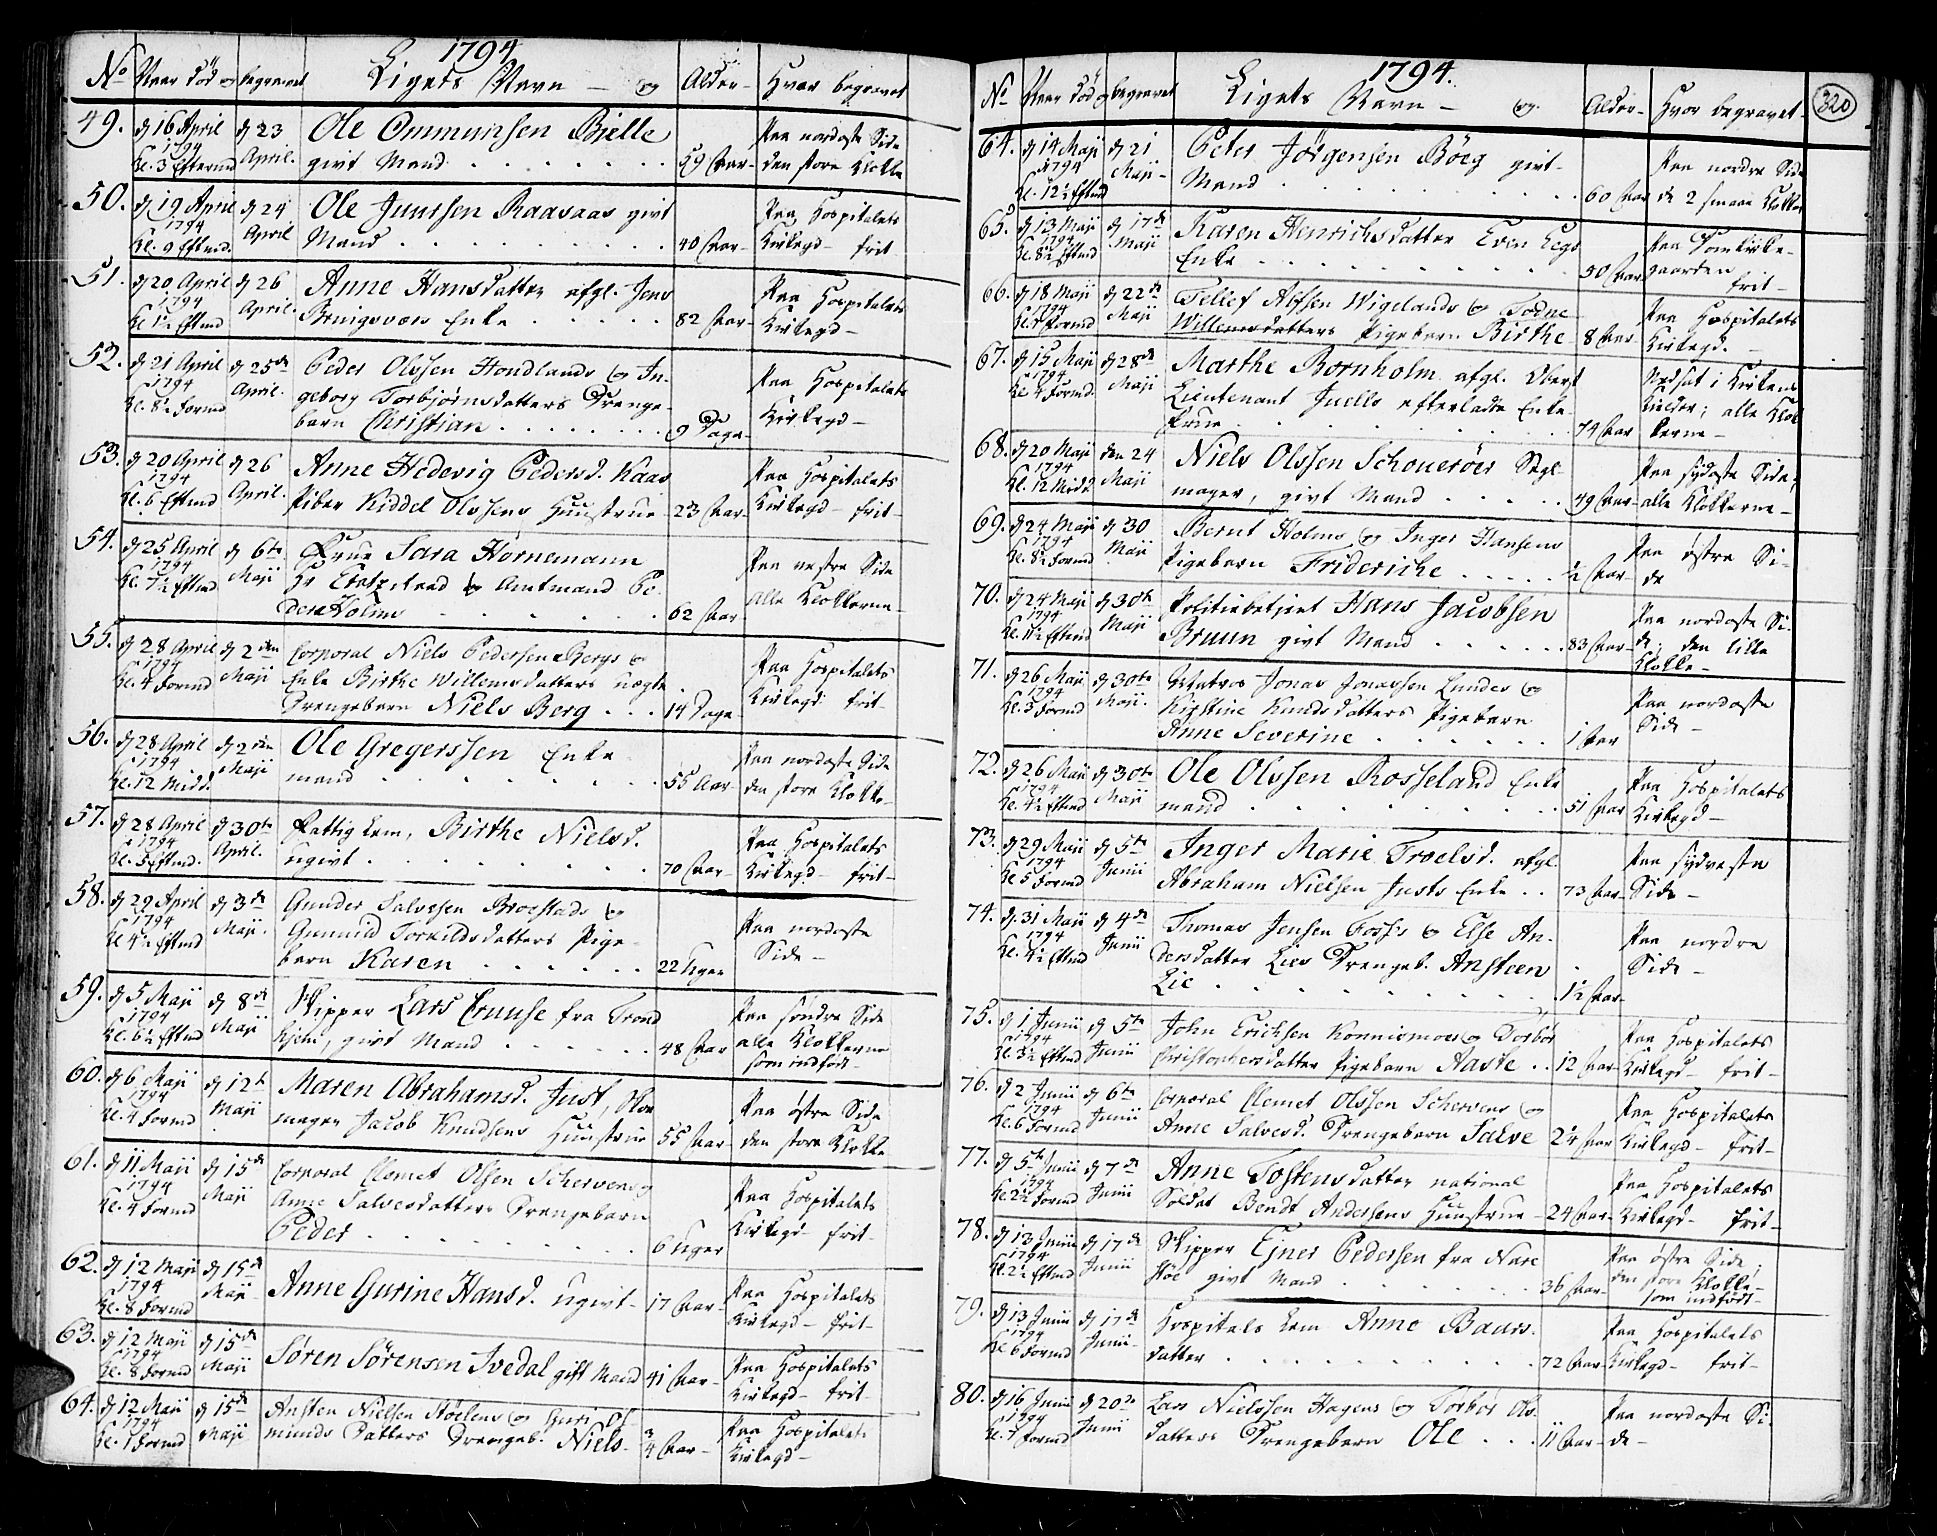 1794
No Naar död og begravet Ligets Navn – og Alder – Hvor begravet
49. d 16 April 1794 Kl. 3 Efterm d 23 April.
Ole Ommunsen Bielle
givt Mand 59 Aar –
Paa nordoste Side
den store Klokke
50. d 19 April 1794 Kl. 9 Eftmd. d 24 April
Ole Juulsen Raasaas givt
Mand 40 Aar –
Paa Hospitalets
Kirkegd – frit
51. d 20 April 1794 Kl. 1½ Eftmd d 26 April.
Anne Hansdatter afgl. Jens
Enke 82 Aar –
Paa Hospitalets
Kirkegd –
52. d 21 April 1794 Kl. 8½ Formd d 25de April.
Peder Olssen Hondlands og In-
geborg Torbjörnsdatters Drenge-
barn Christian 9 Dage –
Paa Hospitalets
Kirkegd –
53. d 20 April 1794 Kl. 6 Eftmd d 26 April.
Anne Hedevig Pedersd. Kaas
Piber Kiddel Olssens Huustrue – 23 Aar –
Paa Hospitalets
Kirkegd – frit –
54. d 25 April 1794 Kl. 7½ Eftmd d 6te Maji
Frue Sara Hornemann
Hr Etatzraad og Amtmand Pe-
ders Holms 62 Aar
Paa vestre Side
Alle Klokkerne –
55. d 28 April 1794 Kl. 4 Formd d 2den Maji
Corporal Niels Pedersen Bergs og
Enke Birthe Willemsdatters uægte
Drengebarn Niels Berg 14 Dage
Paa Hospitalets
Kirkegd frit –
56. d 28 April 1794 Kl. 12 Midd. d 2den Maji
Ole Gregerssen Enke-
mand 55 Aar
Paa nordoste Side
den store Klokke
57. d 28 April 1794 Kl. 5 Eftmd. d 30te April.
Fattig Lem, Birthe Nielsd.
ugivt 70 Aar –
Paa Hospitalets
Kirkegd – frit –
58. d 29 April 1794 Kl 4½ Eftmd d 3de Maji.
Gunder Salvesen Broestads og
Gunnild Torkildsdatters Pige-
barn Karen 22 Uger
Paa nordoste
Side –
59. d 5 Maji 1794 Kl. 6½ Eftmd d 8de Maji
Skipper Lars Cruuse fra Trond-
hjem, givt Mand 48 Aar
Paa søndre Side
alle Klokkerne
som indfødt –
60. d 6 Maji 1794 Kl. 4 Formd d 12te Maji
Maren Abrahamsd. Just, Skoe-
mager Jacob Knudsens Huustrue 55 Aar –
Paa østre Side
den store Klokke
61. d 11 Maji 1794 Kl. 4 Formd d 15de Maji
Corporal Clemet Olsen Schervens og
Anne Salvesdatters Drengebarn
Peder 6 Uger
Paa Hospitalets
Kirkegd – frit –
62. d 12 Maji 1794 Kl. 8 Formd d 15de Maji
Anne Gurine Hansd. ugivt – 17 Aar –
Paa Hospitalets
Kirkegd – frit –
63. d 12 Maji 1794 Kl. 8 Formd d 15de Maji
Søren Sørensen Ivedal gift Mand 41 Aar –
Paa Hospitalets
Kirkegd – frit –
64. d 12 Maji 1794 Kl. 1 Formd d 15de Maji
Ansten Nielsen Stöelens og Guri As-
munds Datters Drengeb. Niels – ¾ Aar –
Paa Hospitalets
Kirkegd –
1794.
320
No Naar död og begravet Ligets Navn – og Alder – Hvor begravet –
64. d 14 Maji 1794 Kl. 12½ Eftmd d 21 Maji –
Peter Jörgensen Böeg givt –
Mand 60 Aar
Paa nordre Side
de 2 smaae Klokker
65. d 13 Maji 1794 Kl. 8½ Eftmd d 17de Maji
Karen Henrichsdatter Even Legs
Enke 50 Aar
Paa Domkirke-
gaarden frit –
66. d 18 Maji 1794 Formd d 22de Maji
Tellef Wigelands og Todne
Willemsdatters Pigebarn Birthe – 8 Aar –
Paa Hospitalets
Kirkegd. –
67. d 15 Maji 1794 Kl. 4 Formd. d 28de Maji
Marthe Bornholm afgl. Oberst
Lieutenant Juells efterladte Enke
Frue 74 Aar
Nedsat i Kirkens
Kielder; alle Klok-
kerne –
68. d 20 Maji 1794 Kl. 12 Midd. den 24 Maji
Niels Olssen Schouerøes Segl-
mager, givt Mand 49 Aar –
Paa sydøste Side;
alle Klokkerne –
69. d 24 Maji 1794 Kl. 8½ Formd d 30 Maji
Bernt Holms og Inger Hansens
Pigebarn Frideriche ½ Aar –
Paa østre Si-
de
70. d 24 Maji 1794 Kl. 11½ Eftmd d 30te Maji
Politiebetjent Hans Jacobsen
Bruun givt Mand 83 Aar –
Paa nordoste Si-
de; den lille
Klokke –
71. d 26 Maji 1794 Kl. 3 Formd d 30te Maji.
Matros Jonas Jonassen Lundes og
Kistine Knudsdatters Pigebarn
Anne Severine 1 Aar
Paa nordoste
Side –
72. d 26 Maji 1794 Kl. 4½ Eftmd d 30te Maji
Ole Olssen Rosseland Enke
mand 51 Aar
Paa Hospitalets
Kirkegd –
73. d 29 Maji 1794 Kl 5 Formd d 5te Junii
Inger Marie Troelsd. afgl
Abraham Nielsen Justs Enke 73 Aar
Paa sydveste
Side –
74. d. 31 Maji 1794 Kl. 4½ Eftmd d 4de Junii
Thomas Jensen Foss's og Else An-
dersdatter Lies Drengeb. Ansteen
Lie 1½ Aar –
Paa nordre
Side –
75. d 1 Junii 1794 Kl. 3½ Eftmd d 5te Junii
John Ericksen Konniemoes og Torbör
Christophersdatter Pigebarn Aaste 12 Aar –
Paa Hospitalets
Kirkegd – frit –
76. d 2 Junii 1794 Kl. 6 Formd d 6te Junii
Corporal Clemet Olssen Schervens og
Anne Salvesd. Drengebarn Salve 2¼ Aar
Paa Hospitalets
Kirkegd – frit –
77. d 5te Junii 1794 Kl. 2½ Formd d 7de Junii
Anne Tostensdatter national
Soldat Bendt Andersens Huustrue – 24 Aar –
Paa Hospitalets
Kirkegd – frit –
78. d 13 Junii 1794 Kl. 2½ Eftmd d 17de Junii
Skipper Ejner Pedersen fra Nare-
stöe givt Mand 36 Aar –
Paa østre Side;
den store Klokke –
som indfödt –
79. d 13 Junii 1794 Kl 6 Formd d 17de Junii –
Hospitals Lem Anne Baars-
datter 72 Aar –
Paa Hospitalets
Kirkegd – frit –
80. d 16 Junii 1794 Kl. 7 Formd d 20de Junii
Lars Nielssen Hagens og Torbör Ols-
datters Drengebarn Ole 11 Aar –
Paa nordoste Si-
de –